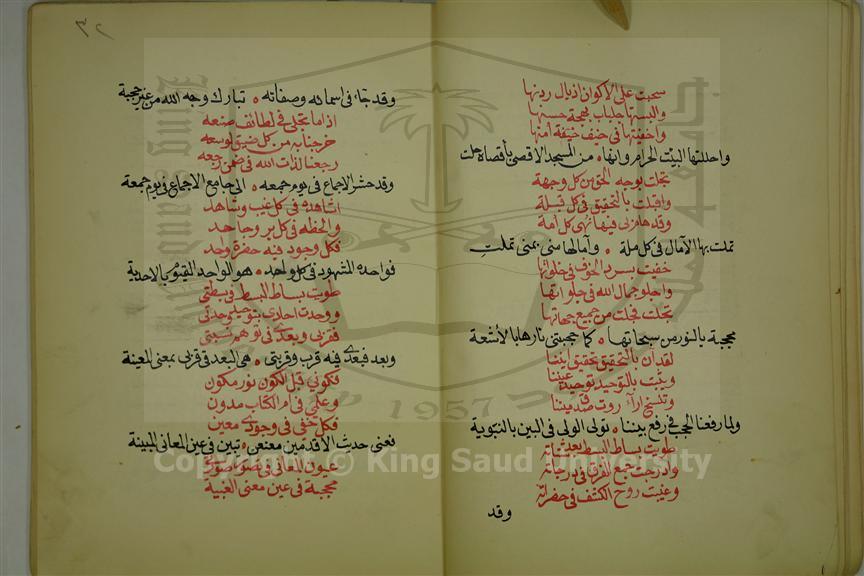 سحبت على الاكوان اذيال ردنها
والبستها جلباب بهجة حسنها
واخفتها في خيف خيفة امنها
واحللتها البيت الحرام وانها ۰ من المسجد الاقصى بأقصاه حلت
تجلت بوجه الحق من كل وجهة
واقبلت بالتحقيق في كل قبلة
وقدها ربي فيها نهى كل امة
تملت بها الآمال في كل ملة ۰ وآمالها مني بمنى تملت
خفيت بسر الخوف في خلواتها
واجلو جمال الله في جلواتها
تجلت فجلت من جميع جهاتها
محجبة بالنور من سبحاتها ۰ كما حجبتني نارها بالأشعة
لقد آن بالتحقيق تحقيق اينا
وغبت بالتوحيد توحيد عيننا
ولما رفعنا الحجب في رفع بيننا ۰ تولى الولي في البين بالنبوية
طويت بساط البسط بعد ثباته
وادرجت جمع الفرق في درجاته
وغيبت روح الكشف في حضراته
وقد
٣٢
وقد جاء في اسمائه وصفاته ۰ تبارك وجه الله من غير حجبة
اذا ما تجلى في لطائف صنعه
خرجنا به من كل ضيق لوسعه
رجعنا لذات الله في ضمن رجعه
وقد حشر الاجماع في يوم جمعه ۰ الى جامع الاجماع في يوم جمعة
اشاهده في كل غيب وشاهد
والحظه في كل بر وجاحد
فكل وجود فيه حضرة واحد
فواحده المشهود في كل واحد ۰ هو الواحد القيوم بالاحدية
طويت بساط البسط في بسطتي
ووحدت احادي بتوحيد وحدتي
فقربي وبعدي في توهم نسبتي
وبعد فبعدي فيه قرب وقربتي ۰ هي البعد في قربي بمعنى المعية
فكوني قبل الكون نور مكون
وعلمي في ام الكتاب مدون
فكل خفي في وجودي معين
فعني حدث الاقدمين معنعن ۰ تبين في عين المعاني المبينة
عيون المعاني في تصور صورتي
محجبة في عين معنى الغيبة
Copyright © King Saud University
1957